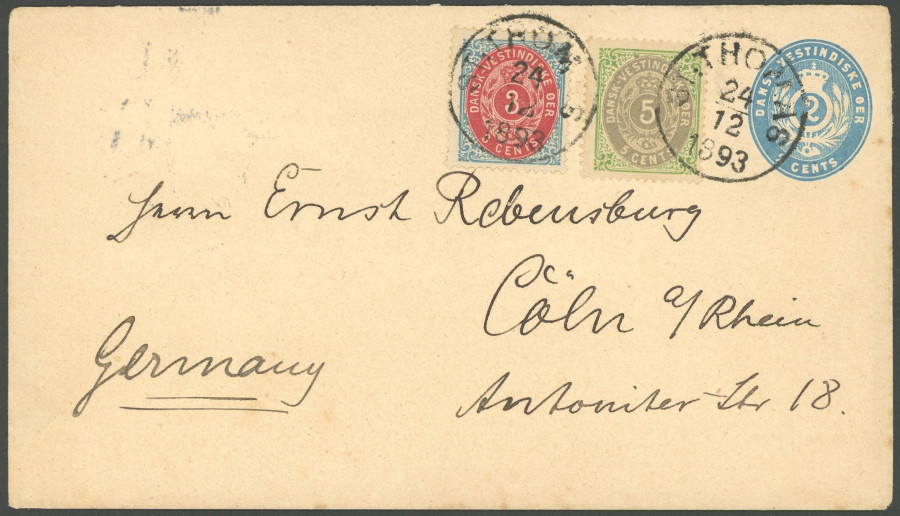 DANSK-VESTINDISKE ØER
3
3 CENTS
DANSK-VESTINDISKE ØER
5
5 CENTS
DANSK VESTINDISKE ØER
2
CENTS
ST. THOMAS
24
12
1893
ST. THOMAS
24
12
1893
Herrn Ernst Rebensburg
Cöln a/Rhein
Germany
Antoniter Str 18.